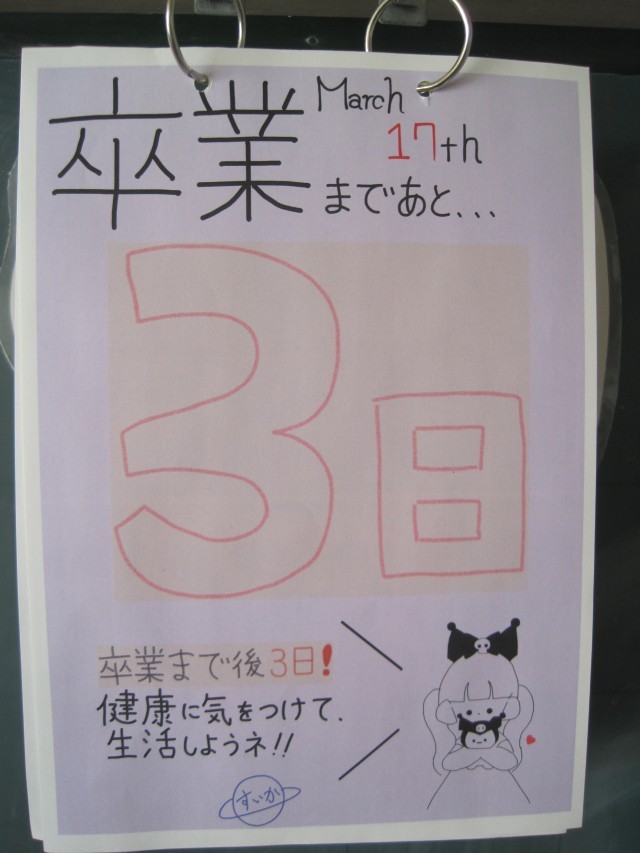 卒業
March
17th
まであと...
3日
卒業まで後3日!
健康に気をつけて、
生活しようネ!!
すいか